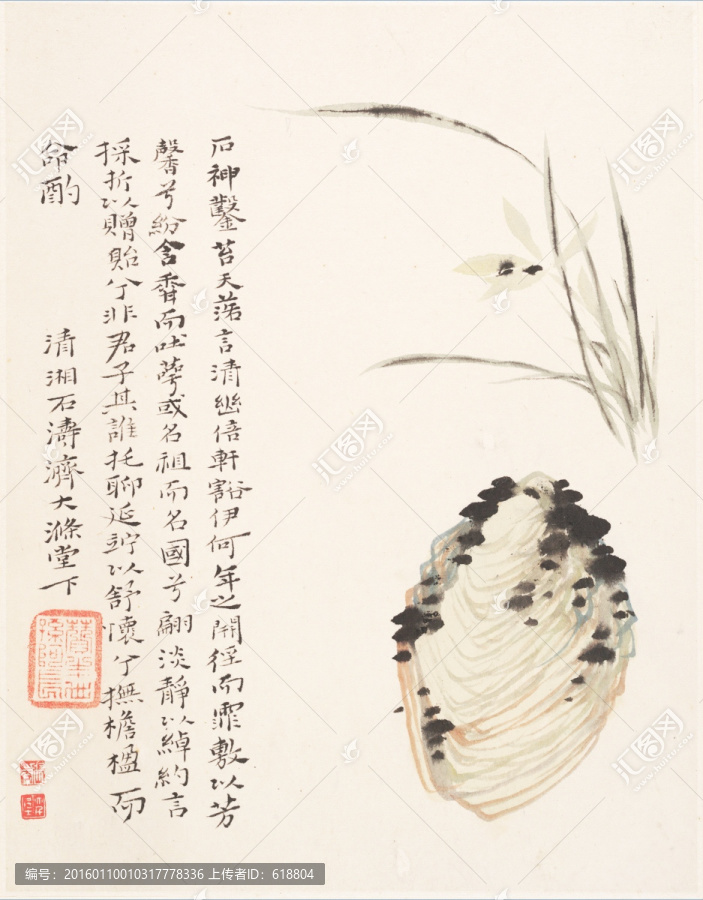 石神鑿苔天言清幽倍軒豁伊何年之開徑而霏敷以芳
馨兮紛含香而吐萼或名祖而名國兮翩淡靜以綽約言
採折以贈貽兮非君子其誰托聊延竚以舒懷兮撫檐楹而
命酌
清湘石濤濟大滌堂下
贊之十世孫阿長
汇图网
www.huitu.com
编号：20160110010317778336 上传者ID：618804